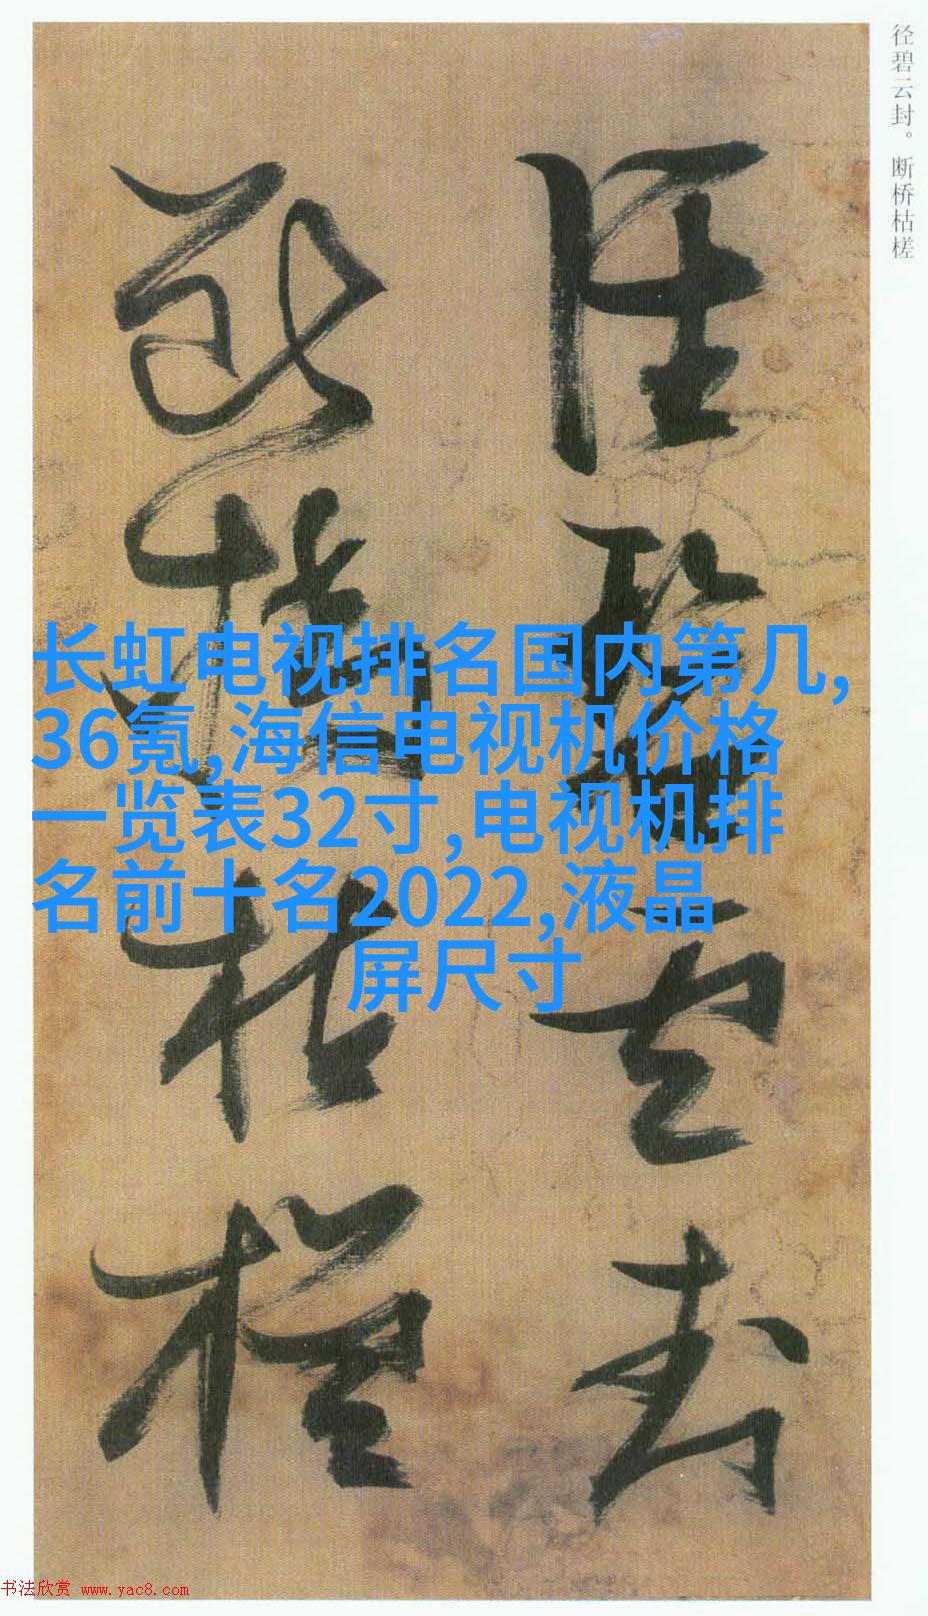 径碧云封。断桥枯槎
径碧云封
断桥枯槎
长虹电视排名国内第几,
36氪,海信电视机价格
一览表32寸,电视机排
名前十名2022,液晶
屏尺寸
书法欣赏 www.yac8.com